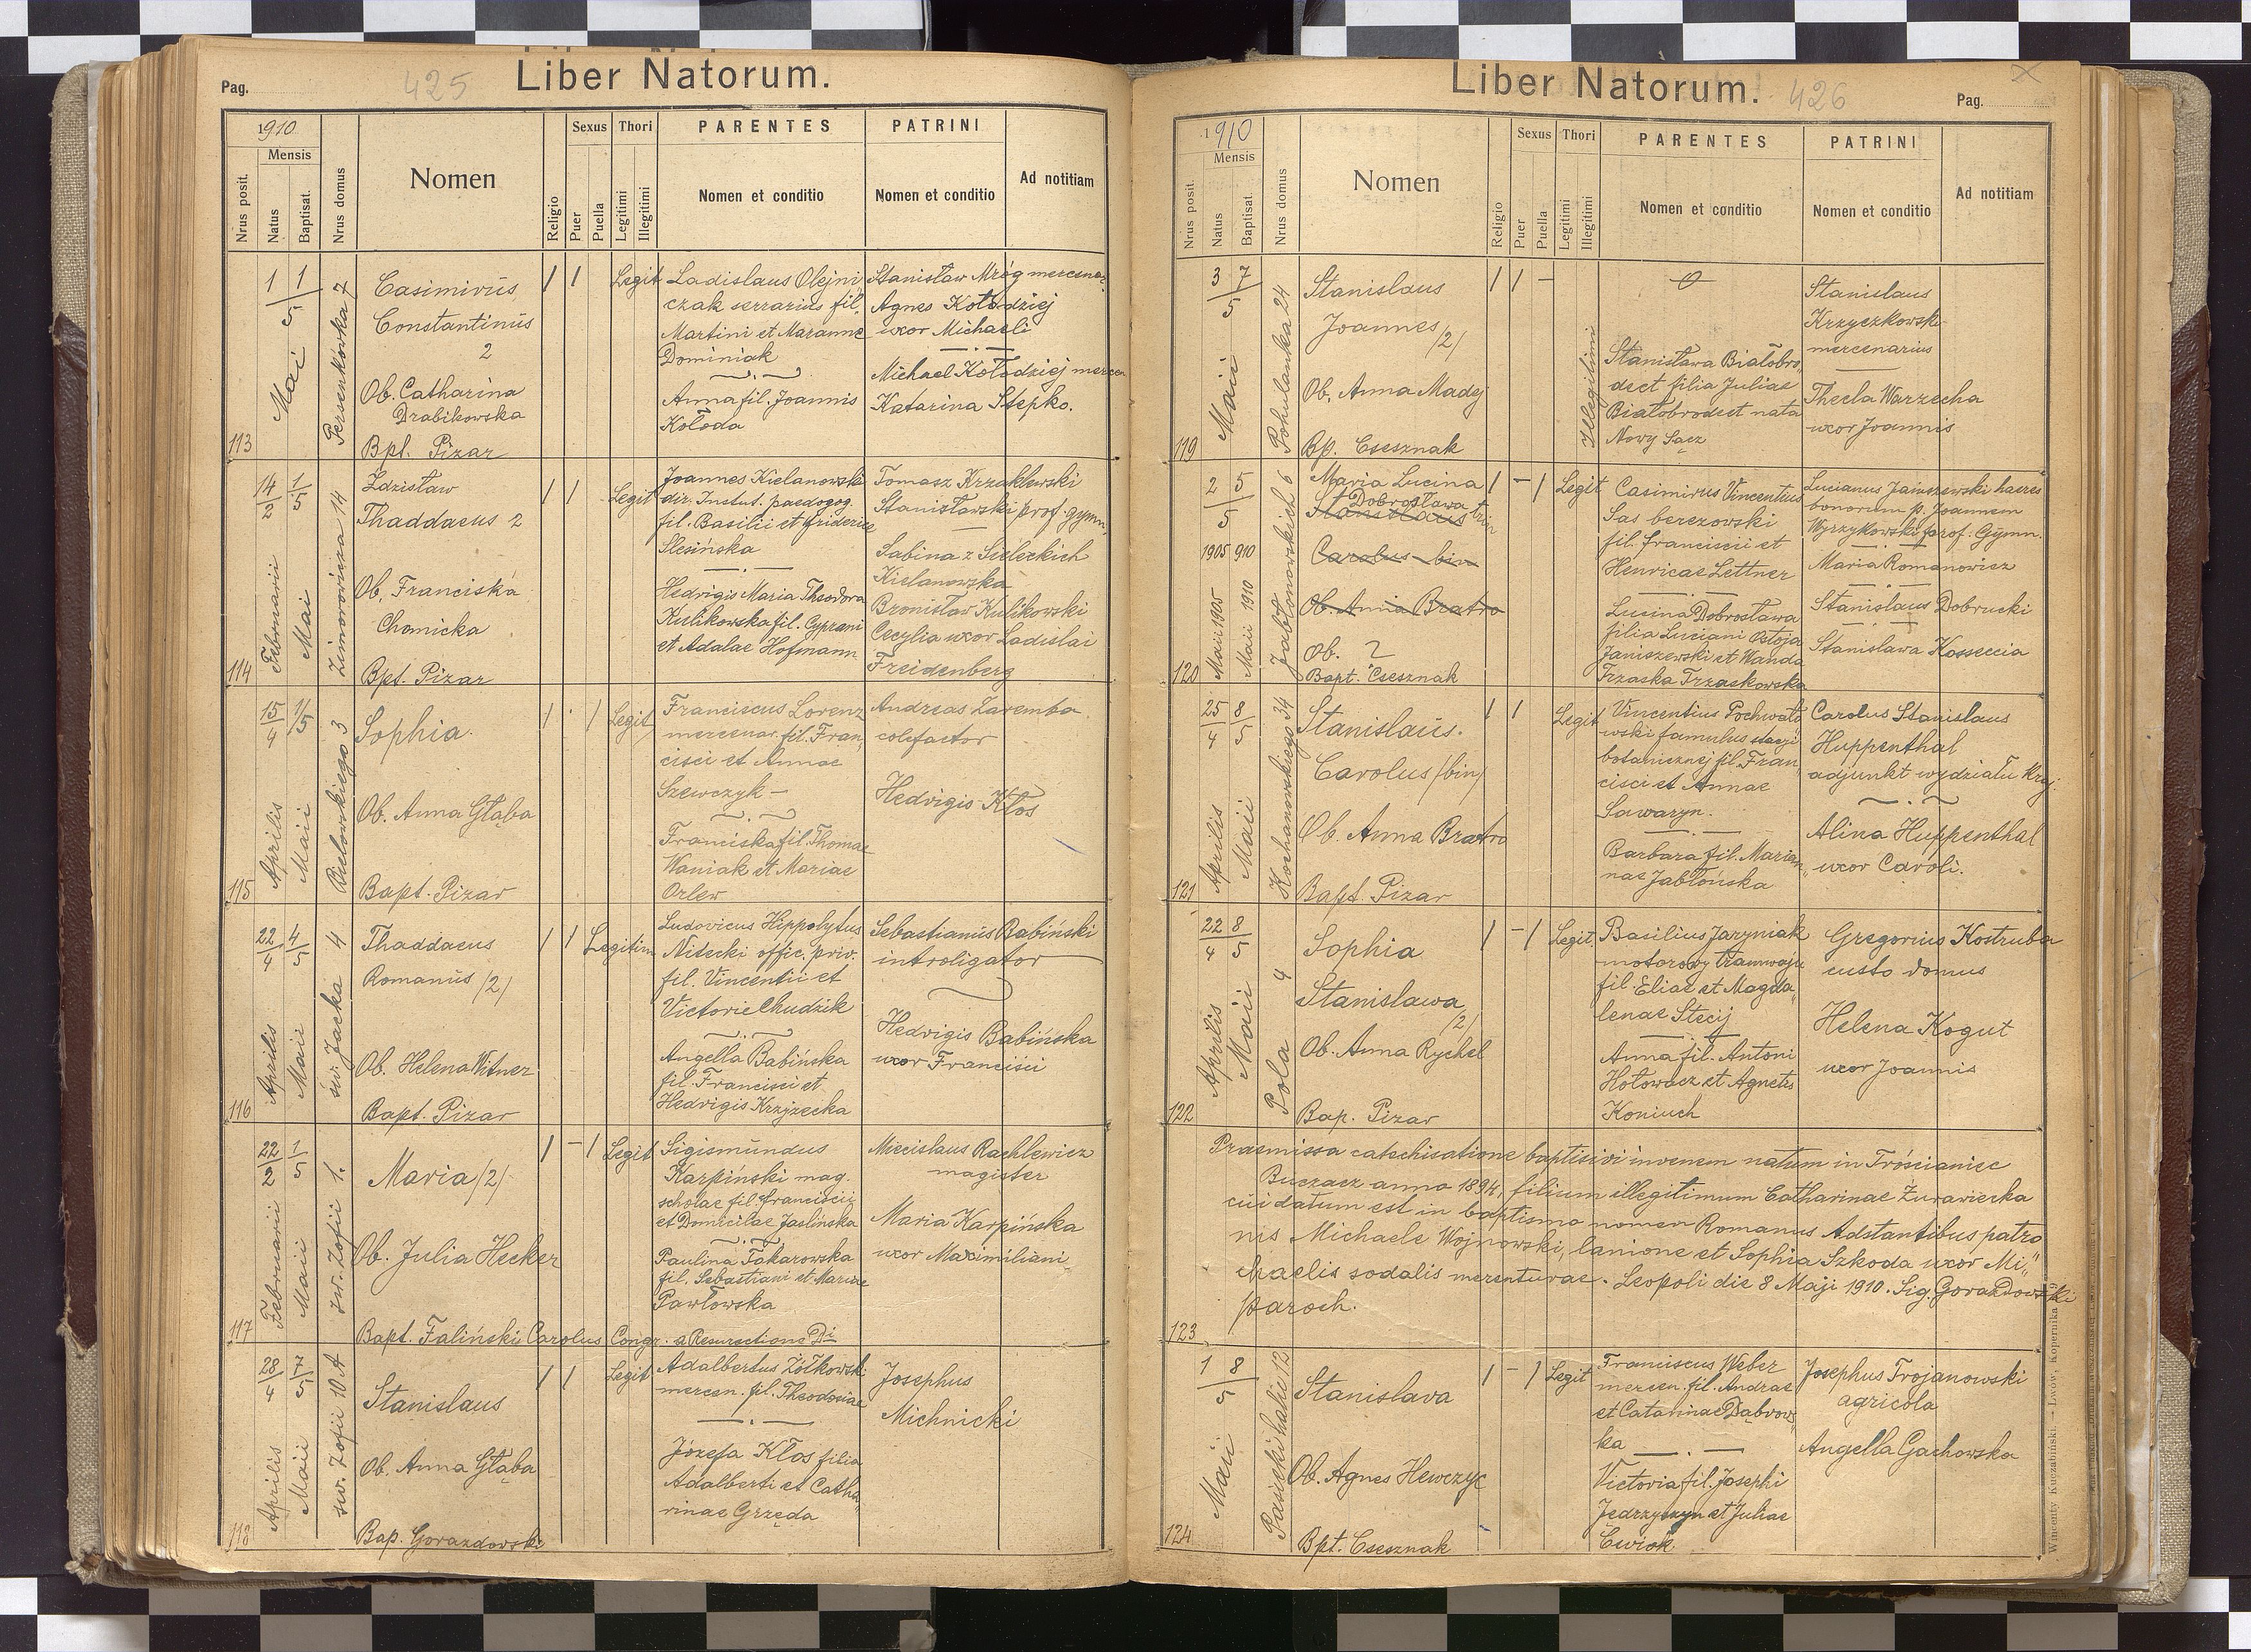 Pag.
425
Liber Natorum.
1910
Mensis
Nrus posit.
Natus
Baptisat.
Nrus domus
Nomen
Religio
Sexus
Puer
Puella
Thori
Legitimi
Illegitimi
PARENTES
Nomen et conditio
PATRINI
Nomen et conditio
Ad notitiam
113
1 1
5
Maii
Persenkowka 7
Casimirus
Constantinus
2
Ob. Catharina
Drabikowska
Bpt. Pizar
1 1
Legit
Ladislaus Olejni
czak serrarius fil.
Martini et Marannae
Dominiak
Anna fil. Joannis
Kołoda
Stanisław Mróg mercena.
Agnes Kołodziej
uxor Michaeli
Michael Kołodziej mercen
Katarina Stepko.
114
14/2 1/5
Februarii
Maii
Zimorowicza 14
Zdzisław
Thaddaeus 2
Ob. Franciska
Chomicka
Bpt. Pizar
1 1
Legit
Joannes Kielanowski
dir. Instut. paedogog.
fil. Basilii et Friderice
Slesińska
Hedvigis Maria Theodora
Kulikowska fil. Cyprani
et Adalae Hofmann
Tomasz Krzaklewski
Stanisławski prof. gymn.
Sabina z Sieleckich
Kielanowska
Bronisław Kulikowski
Cecylia uxor Ladislai
Freidenberg
115
15/4 1/5
Aprilis
Maii
Bielowskiego 3
Sophia.
Ob. Anna Głąba
Bapt. Pizar
1 1
Legit
Franciscus Lorenz
mercenar. fil. Fran,
cisci et Annae
Szewczyk -
Franciska fil. Thomae
Waniak et Mariae
Orlew
Andreas Zaremba
colefactor
Hedvigis Kłos
116
22/4 4/5
Aprilis
Maii
św. Jacka 4
Thaddaeus
Romanus /2/
Ob. Helena Witner
Bapt. Pizar
1 1
Legitim
Ludovicus Hippolytus
Nitecki offic. priv.
fil. Vincentii et
Victorie Chudzik
Angella Babińska
fil. Francisci et
Hedvigis Krzyżecka
Sebastianus Babiński
introligator
Hedvigis Babińska
uxor Francisci
117
22/2 1/5
Februarii
Maii
św. Zofii 1.
Maria /2/
Ob. Julia Hecker
Bapt. Faliński Carolus Congr. a Resurectione Di
1 - 1
Legit
Sigismundus
Karpiński mag.
scholae fil. Franciscii
et Domicilae Jaslińska
Paulina Takarowska
fil. Sebastiani et Mariae
Pawłowska
Miecislaus Rachlewicz
magister
Maria Karpińska
uxor Maximiliani
118
28/4 7/5
Aprilis
Maii
św. Zofii 10 A
Stanislaus
Ob. Anna Głąba
Bap. Gorazdowski
1 1
Legit
Adalbertus Żółkowski
mercen. fil. Theodosiae
Józefa Kłos filia
Adalberti et Catha,
rinae Grzęda
Josephus
Michnicki
Liber Natorum.
426
Pag.
1910
Mensis
Nrus posit.
Natus
Baptisat.
Nrus domus
Nomen
Religio
Sexus
Puer
Puella
Thori
Legitimi
Illegitimi
PARENTES
Nomen et conditio
PATRINI
Nomen et conditio
Ad notitiam
119
3 7
5
Maii
Pohulanka 24
Stanislaus
Joannes /2/
Ob. Anna Madej
Bp. Csesznak
1 1 -
Illegitimi
0
Stanisława Białobro,
dect filia Juliae
Białobrodect nata
Nowy Sącz
Stanislaus
Krzyczkowski
mercenarius
Thecla Warzecha
uxor Joannis
120
2 5
5
1905 910
Maii 1905
Maii 1910
Jabłonowskich 6
Maria Lucina
Dobrosława trin
Stanislaus
Carolus bin
Ob. Anna Bratro
Ob. ?
Bapt. Csesznak
1 - 1
Legit
Casimirus Vincentius
Sas berezowski
fil. franciscii et
Henricae Lettner
Lucina Dobrosława
filia Luciani Ostoja
Janiszewski et Wanda
Trzaska Trzaskowska
Lucianus Janiszewski haeres
bonorum p. Joannem
Wyrzykowski prof. Gymn.
Maria Romanowicz
Stanislaus Dobrucki
Stanislawa Kosseccia
121
25 8
4 5
Aprilis
Maii
Kochanowskiego 34
Stanislaus.
Carolus /bin/
Ob. Anna Bratro
Bapt. Pizar
1 1
Legit
Vincentius Pochwało
wski famulus stacji
botanicznej fil. Fran,
cisci et Annae
Sawaryn.
Barbara fil. Marian,
nae Jabłońska
Carolus Stanislaus
Huppenthal
adjunkt wydziału kraj.
Alina Huppenthal
uxor Caroli.
122
22 8
4 5
Aprilis
Maii
Pola 4
Sophia
Stanislawa
/2/
Ob. Anna Rychel
Bap. Pizar
1 - 1
Legit.
Basilius Jaryniak
motorowy tramwaju
fil. Eliae et Magda,
lenae Stecij
Anna fil. Antoni
Hołowacz et Agnetis
Koniuch
Gregorius Kostruba
custo domus
Helena Kogut
uxor Joannis
Praemissa catechisatione baptisivi invenem natum in Trościaniec
Buczacz anno 1894, filium illegitimum Catharinae Żurawiecka
cui datum est in baptismo nomen Romanus Adstantibus patro
nis Michaele Wojnowski, lanione et Sophia Szkoda uxor Mi,,
chaelis sodalis mercenturae. Leopoli die 8 Maji 1910. Sig. Gorazdowski
paroch.
123
124
1 8
5
Maii
Pasieki halic 12
Stanislava
Ob. Agnes Hewczyc
Bpt. Csesznak
1 - 1
Legit
Franciscus Weber
mercen. fil. Andrae
et Catarinae Dąbrow,
ka
Victoria fil. Josephi
Jędrzyszyn et Juliae
Cwiok.
Josephus Trojanowski
agricola
Angella Gachowska
Wincenty Kuczabiński - Lwów, Kopernika 9